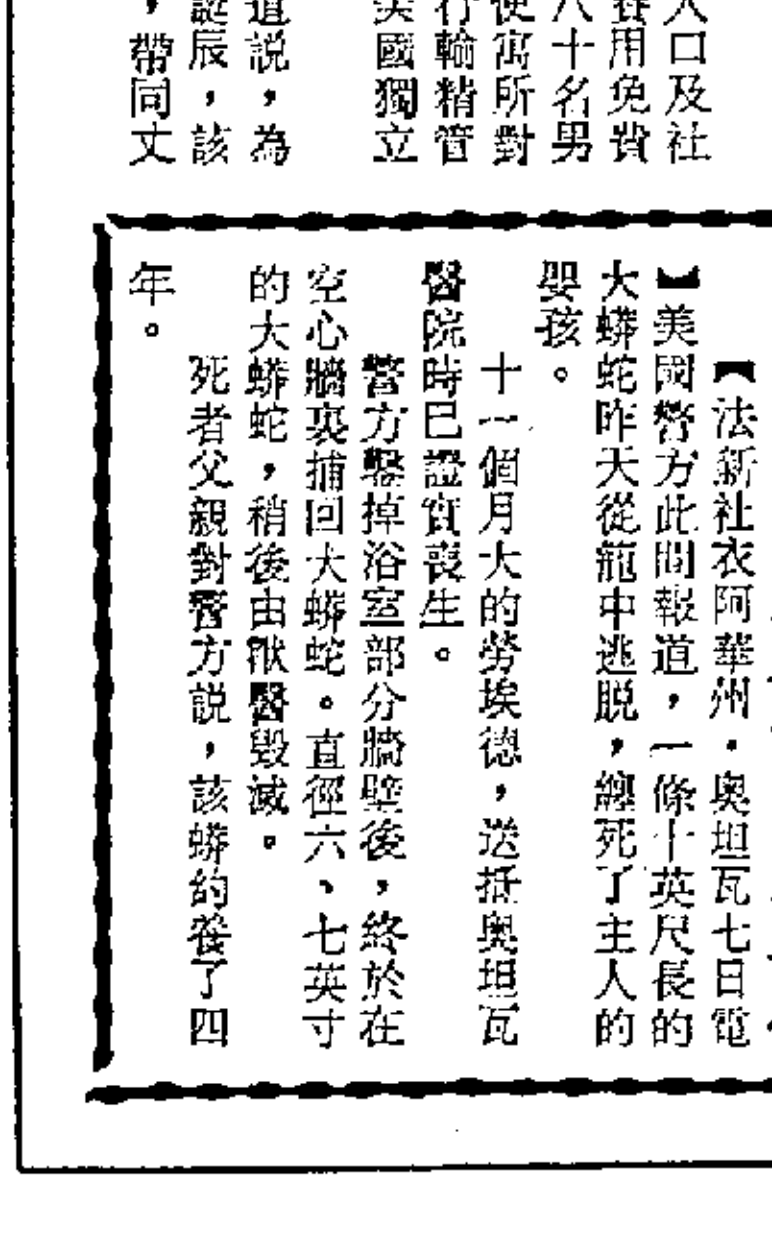 人口及社
養用免費
八十名男
使寓所對
行輸精管
美國獨立
道説，為
誕辰，該
，帶同丈
【法新社衣阿華州·奧坦瓦七日電
】美國警方此間報道，一條十英尺長的
大蟒蛇昨天從籠中逃脱，纏死了主人的
嬰孩。
十一個月大的勞埃德，送抵奧坦瓦
醫院時已證實喪生。
警方鑿掉浴室部分牆壁後，終於在
空心牆裏捕回大蟒蛇。直徑六、七英寸
的大蟒蛇，稍後由獸醫毀滅。
死者父親對警方説，該蟒約養了四
年。